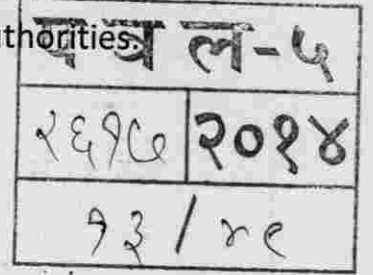 uthorities.
ल-५
२६१७ २०१४
१३/४९